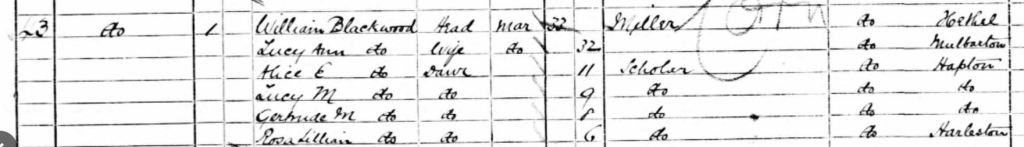 43 do 1 William Blackwood Head Mar 32 Miller do Hethel
Lucy Ann do Wife do 32 do Mulbarton
Alice E do Daur 11 Scholar do Hapton
Lucy M do do 9 do do do
Gertrude M do do 8 do do do
Rosa Lillian do do 6 do do Harleston